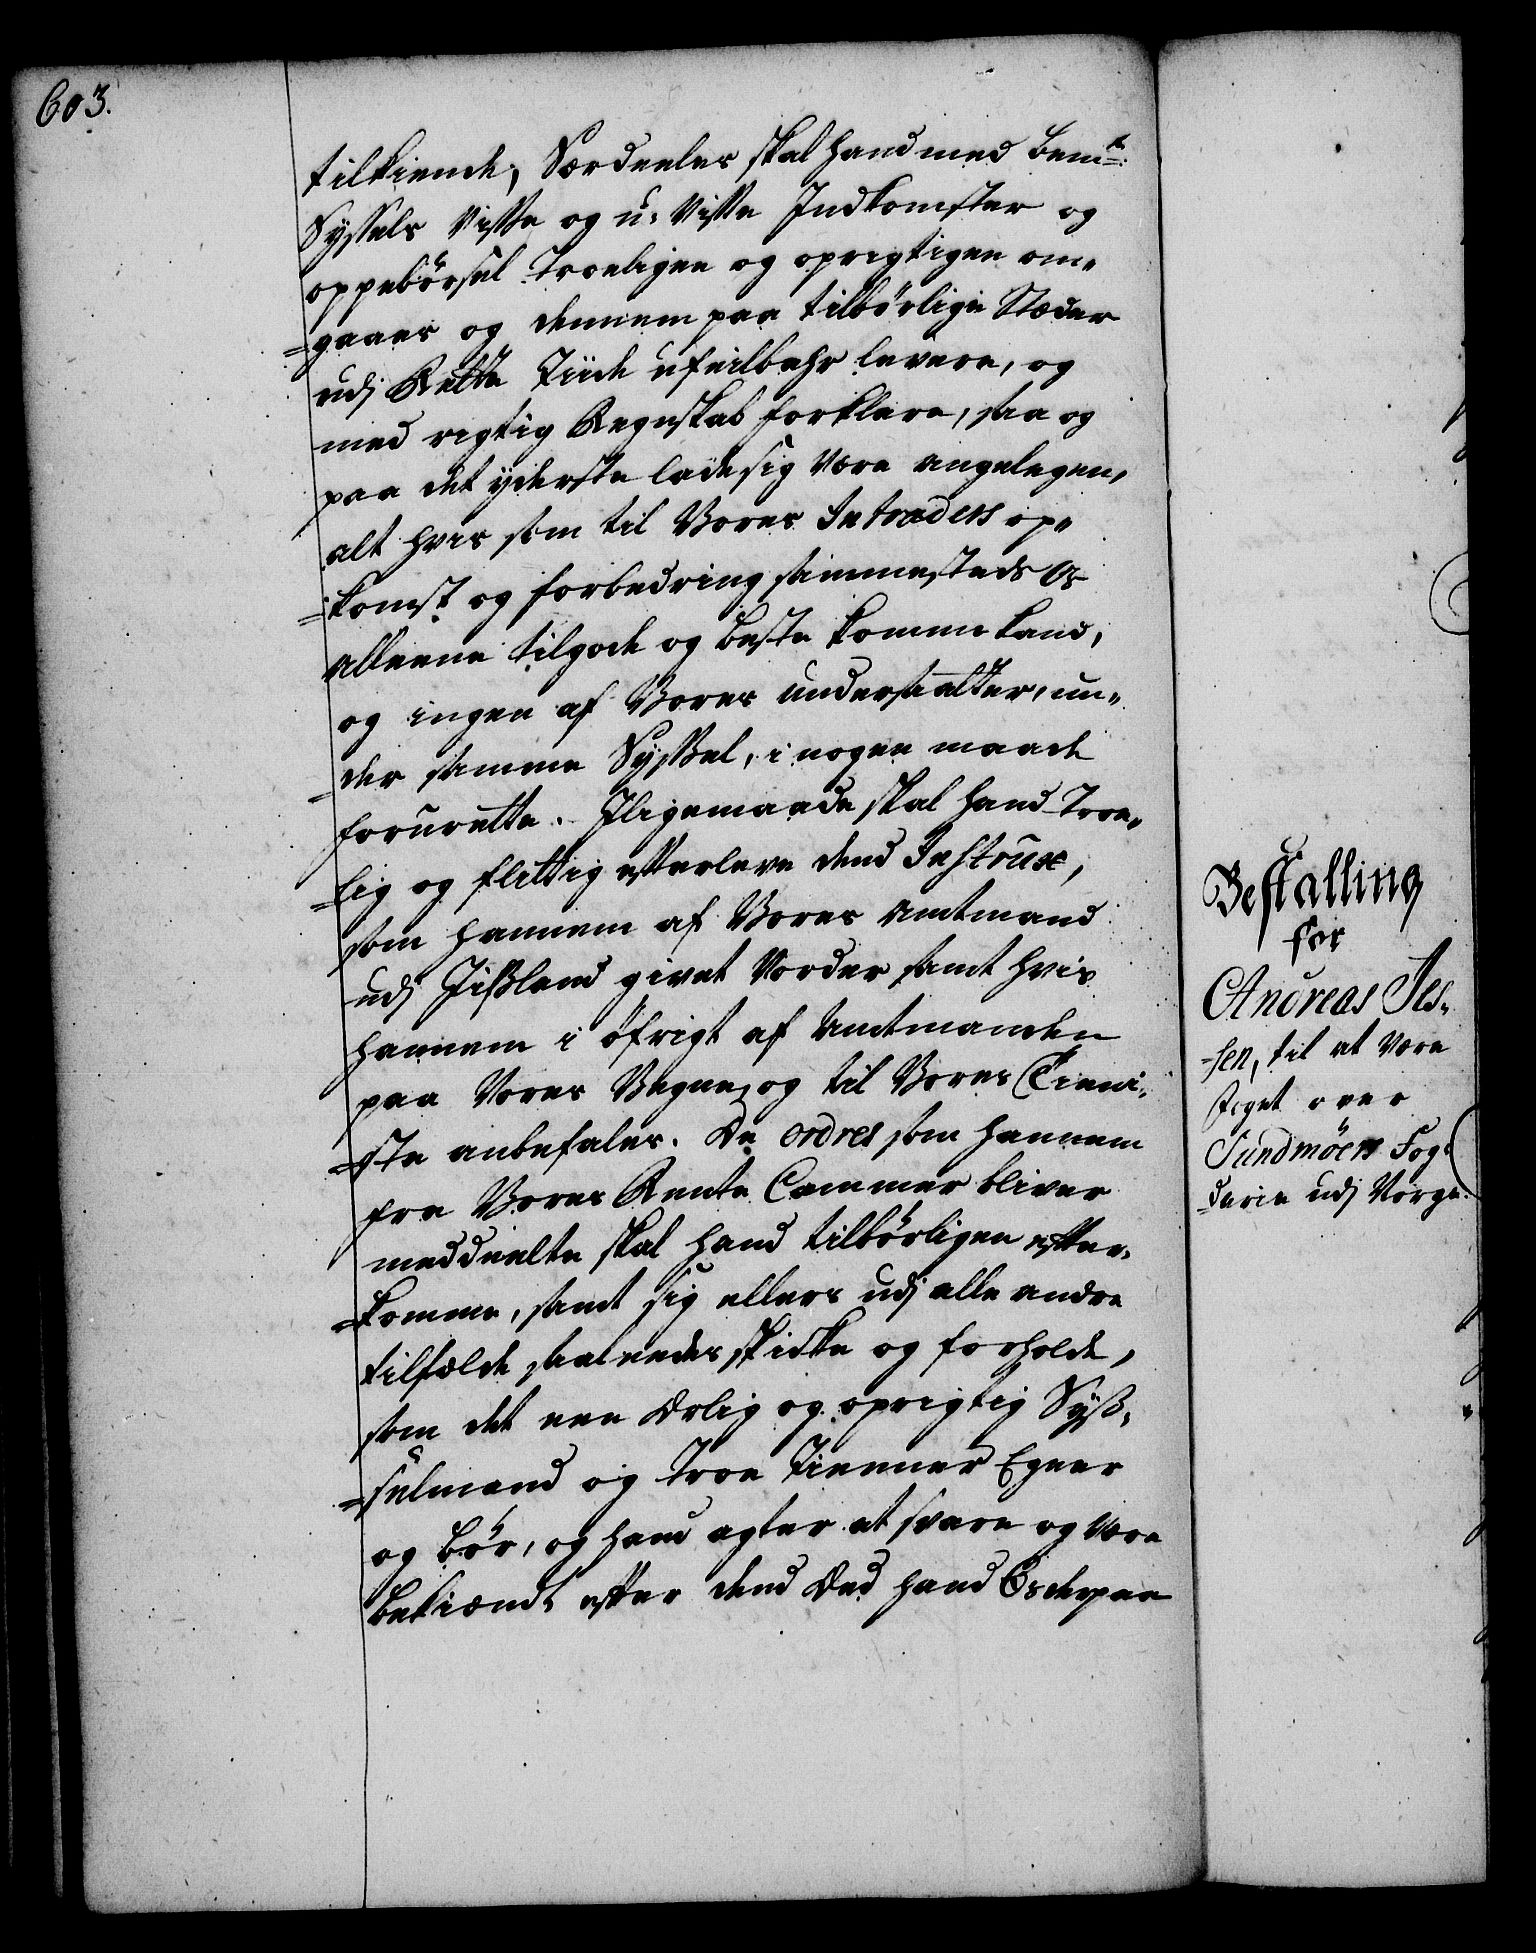 603.
tilkiende, Særdeeles skal hand med bemte
Syssels Visse og u-Visse Indkomster og
oppebørsel Troeligen og oprigtigen om-
gaaes og dennem paa tilbørlige Stæder
udj Rette Tiide ufeilbahr levere, og
med rigtig Regnskab forklare, saa og
paa det yderste lade sig være angelegen,
alt hvis som til Vores Intraders op-
komst og forbedring sammesteds Os
alleene tilgode og beste komme kand,
og ingen af Vores undersaatter, un-
der samme Syssel, i nogen maade
foruretta. Iligemaade skal hand Troe-
lig og flittig efterleve dend Instrux,
som hannem af Vores Amtmand
udj Iisland givet Vorder samt hvis
hannem i øfrigt af Amtmanden
paa Vores Vegne, og til Vores Tieni-
ste anbefales. De ordres som hannem
fra Vores Rente Cammer bliver
meddeelte skal hand tilbørligen efter-
komme, samt sig ellers udj alle andre
tilfælde saaleedes skicke og forholde,
som det een Ærlig og oprigtig Sys-
selmand og Troe Tienner Egner
og bør, og hand agter at svare og være
bekiendt efter dend Eed hand Os derpaa
Bestalling
for
Andreas Jes-
sen, til at være
foget over
Sundmøers Fog-
derie udj Norge.